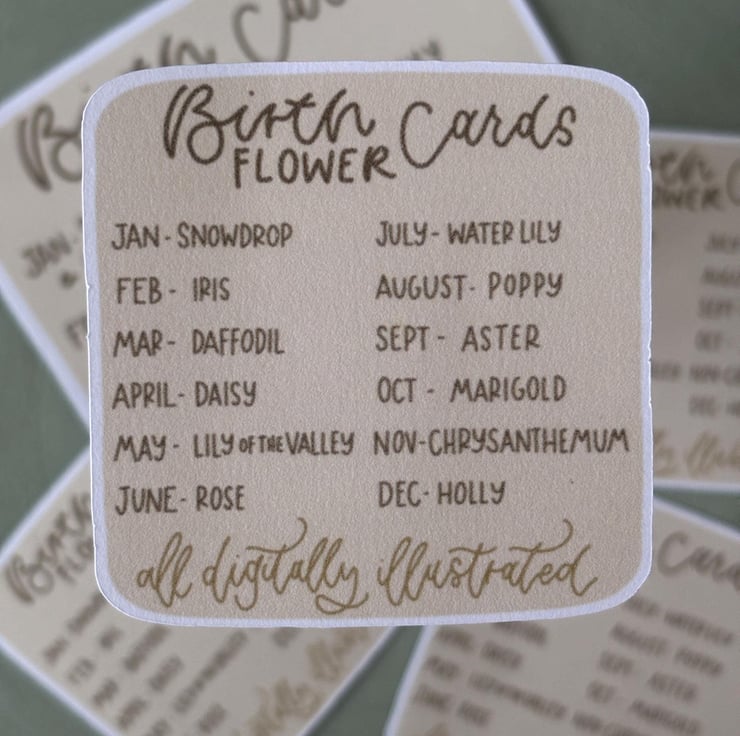 Birth Cards
FLOWER
JAN - SNOWDROP
FEB - IRIS
MAR - DAFFODIL
APRIL - DAISY
MAY - LILY OF THE VALLEY
JUNE - ROSE
JULY - WATER LILY
AUGUST - POPPY
SEPT - ASTER
OCT - MARIGOLD
NOV - CHRYSANTHEMUM
DEC - HOLLY
all digitally illustrated